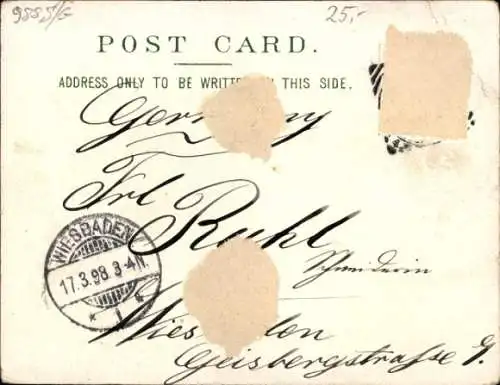 9555/G
25,-
POST CARD.
ADDRESS ONLY TO BE WRITTEN ON THIS SIDE.
Germany
Frl
Ruhl
Schneiderin
Wiesbaden
Geisbergstrasse
WIESBADEN
17.3.98.3-4N.
* 1 *